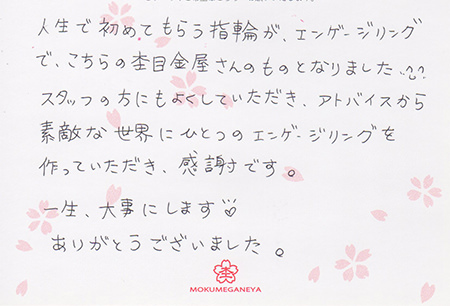 人生で初めてもらう指輪が、エンゲージリング
で、こちらの杢目金屋さんのものとなりました
スタッフの方にもよくしていただき、アドバイスから
素敵な世界にひとつのエンゲージリングを
作っていただき、感謝です。
一生、大事にします
ありがとうございました。
杢
MOKUMEGANEYA